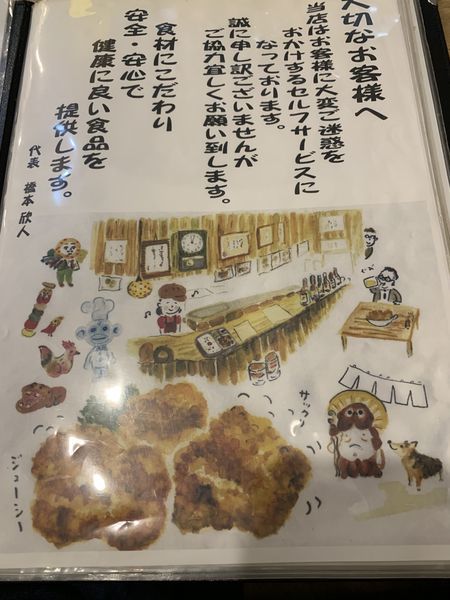 大切なお客様へ
当店はお客様に大変ご迷惑を
おかけするセルフサービスに
なっております。
誠に申し訳ございませんが
ご協力宜しくお願い到します。
食材にこだわり
安全・安心で
健康に良い食品を
提供します。
代表 橋本 欣人
サックリ
ジューシー